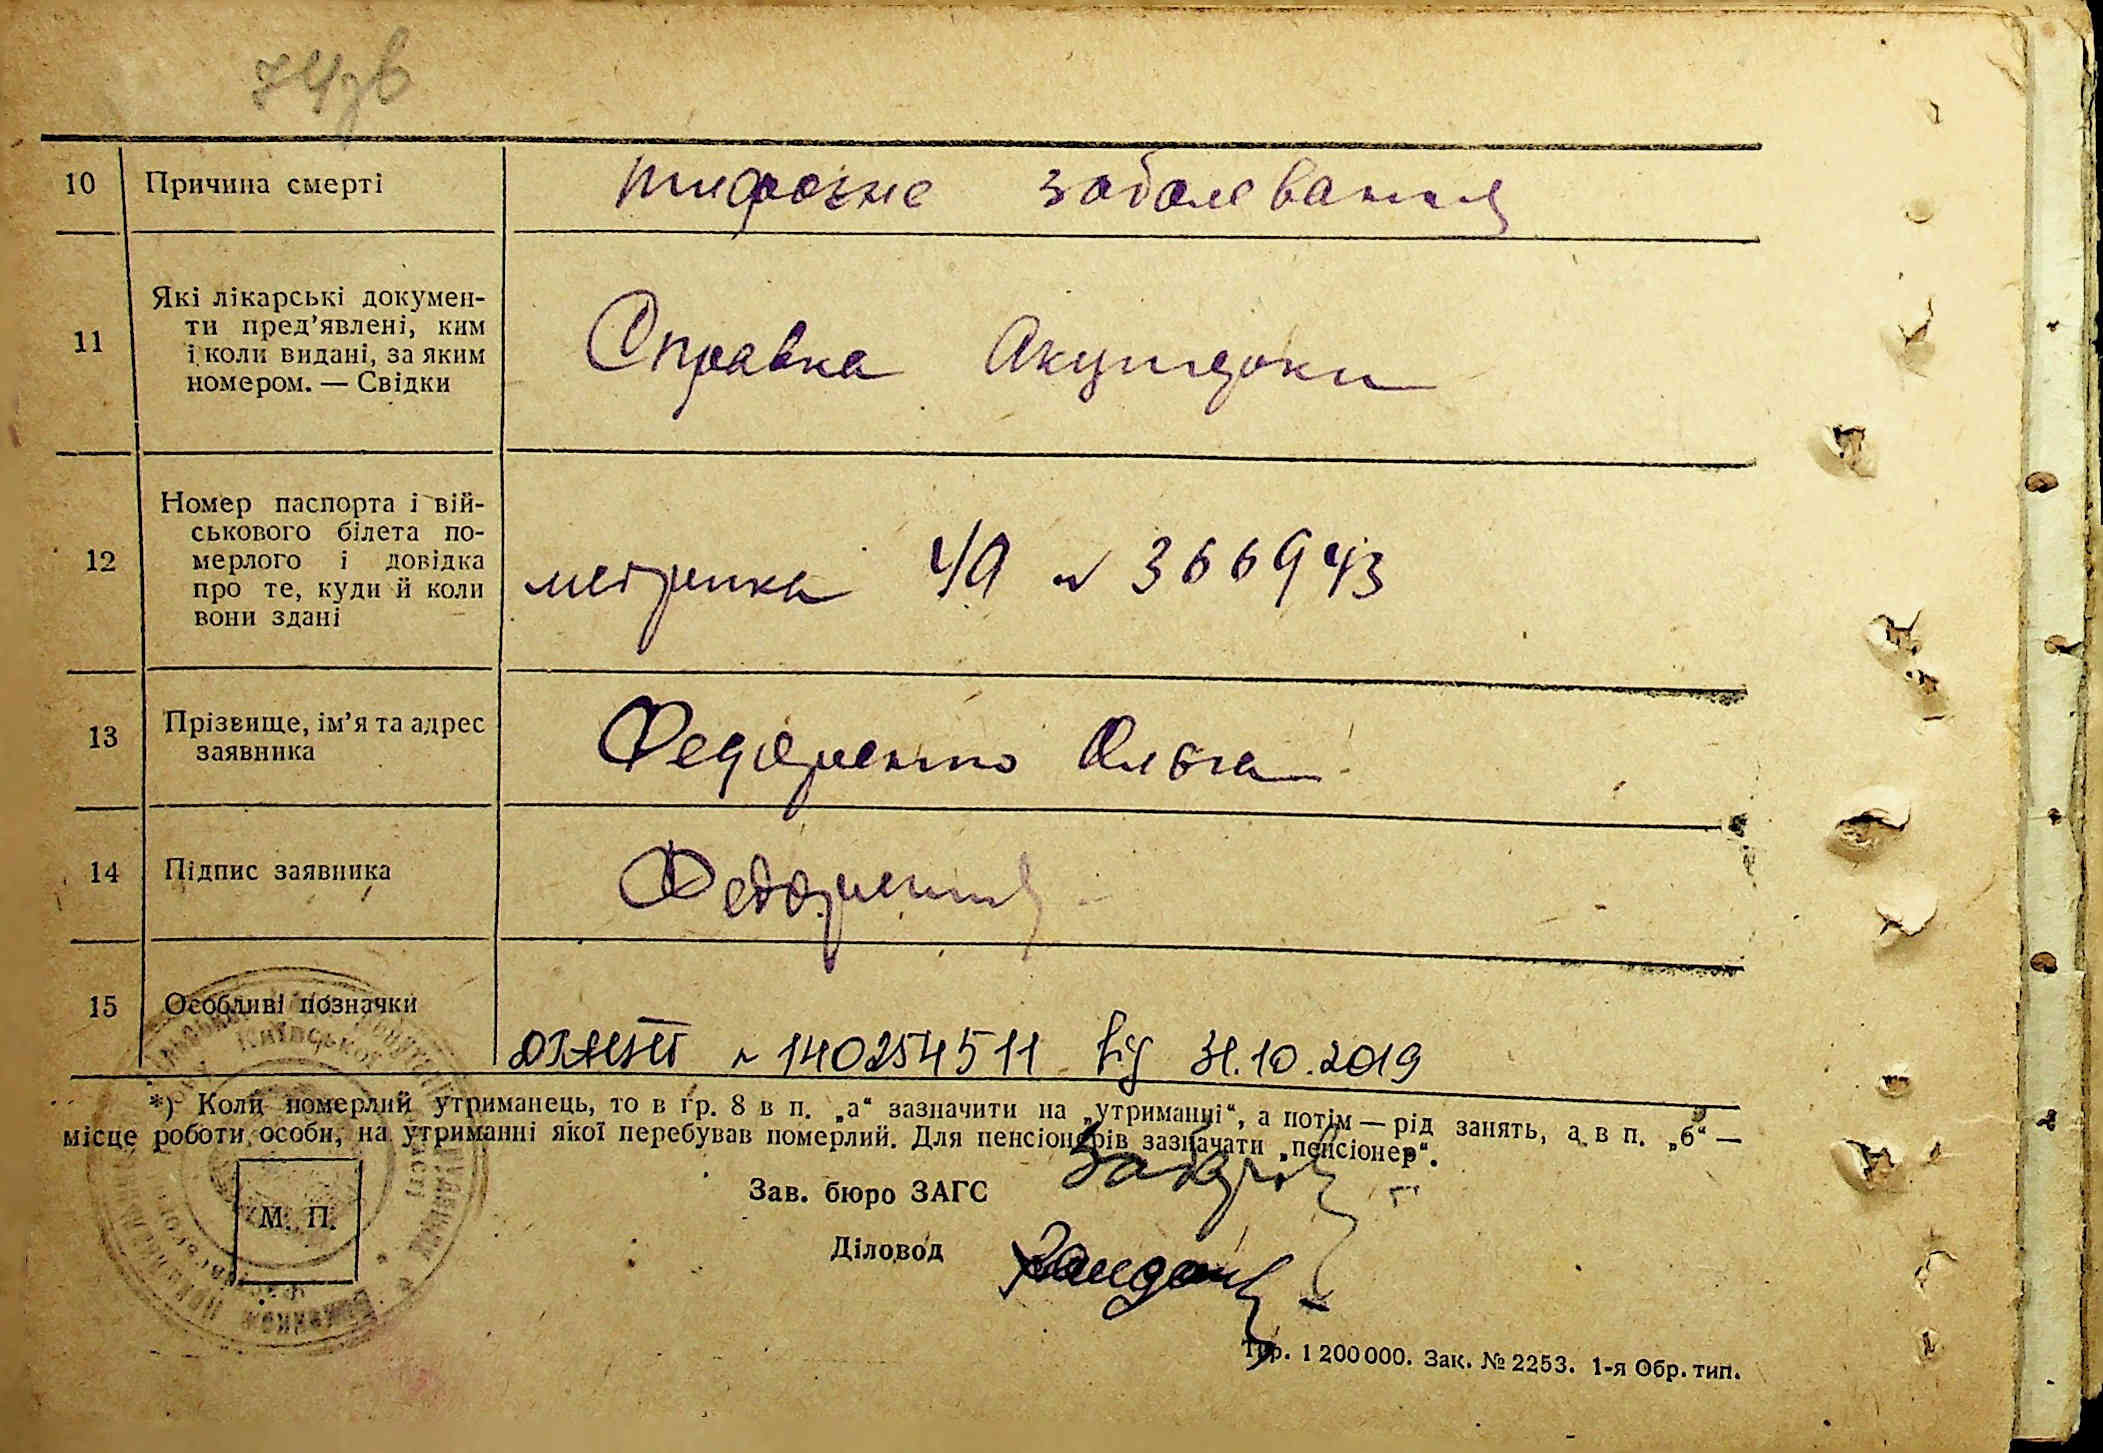 74зв
10 Причина смерті тифозне заболевания
11 Які лікарські докумен-
ти пред’явлені, ким
і коли видані, за яким
номером. — Свідки
Справка Акушерки
12 Номер паспорта і вій-
ськового білета по-
мерлого і довідка
про те, куди й коли
вони здані
метрика ЧА № 366943
13 Прізвище, ім’я та адрес
заявника
Федоренко Ольга
14 Підпис заявника Федоренко
15 Особливі позначки
№ 140254511 від 31.10.2019
*) Коли померлий утриманець, то в гр. 8 в п. „а“ зазначити на „утриманні“, а потім — рід занять, а в п. „б“ —
місце роботи особи, на утриманні якої перебував померлий. Для пенсіонерів зазначати „пенсіонер“.
Зав. бюро ЗАГС
М. П.
Діловод
Тир. 1 200 000. Зак. № 2253. 1-я Обр. тип.